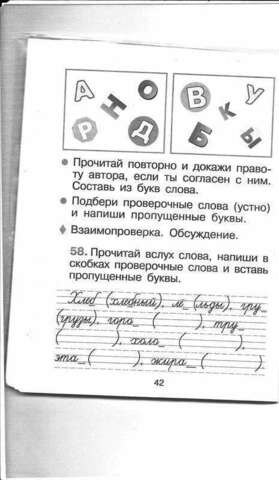 А Н О Р Д
В К У Б Ы
• Прочитай повторно и докажи право-
ту автора, если ты согласен с ним.
Составь из букв слова.
• Подбери проверочные слова (устно)
и напиши пропущенные буквы.
♦ Взаимопроверка. Обсуждение.
58. Прочитай вслух слова, напиши в
скобках проверочные слова и вставь
пропущенные буквы.
Хлеб (хлебный), лё_ (льды), гру_
(грузы), горо_ ( ), тру_
( ), холо_ ( ),
эта_ ( ), жира_ ( ).
42